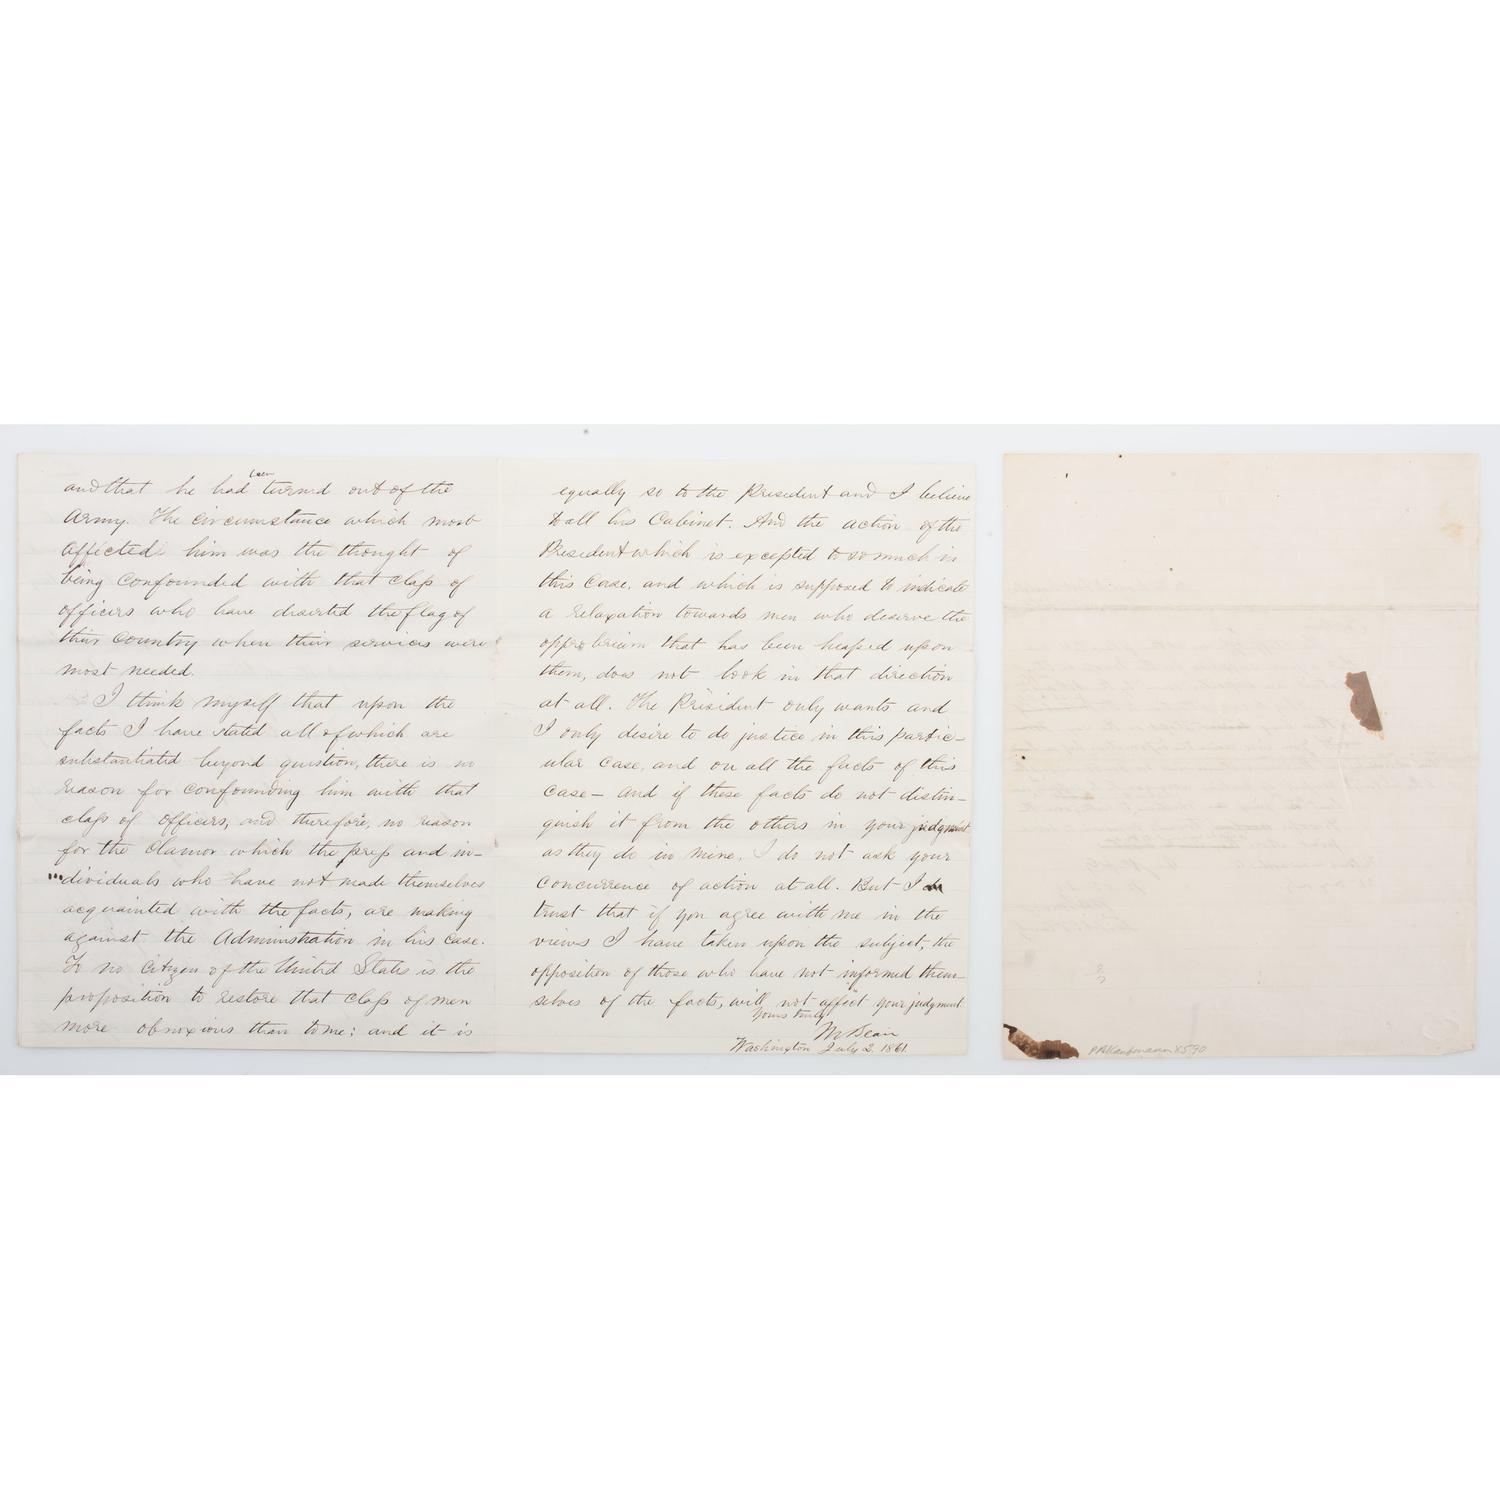 and that he had been turned out of the
Army. The circumstance which most
affected him was the thought of
being confounded with that class of
officers who have deserted the flag of
their country when their services were
most needed.
I think myself that upon the
facts I have stated all of which are
substantiated beyond question, there is no
reason for confounding him with that
class of officers, and therefore, no reason
for the clamor which the press and in-
dividuals who have not made themselves
acquainted with the facts, are making
against the Administration in his case.
To no citizen of the United States is the
proposition to restore that class of men
more obnoxious than to me: and it is
equally so to the President and I believe
to all his Cabinet. And the action of the
President which is excepted to so much in
this case, and which is supposed to indicate
a relaxation towards men who deserve the
opprobrium that has been heaped upon
them, does not look in that direction
at all. The President only wants and
I only desire to do justice in this partic-
ular case, and on all the facts of this
case - and if these facts do not distin-
guish it from the others in your judgment
as they do in mine, I do not ask your
concurrence of action at all. But I
trust that if you agree with me in the
views I have taken upon the subject, the
opposition of those who have not informed them-
selves of the facts, will not affect your judgment
Yours truly
Washington July 2. 1861.